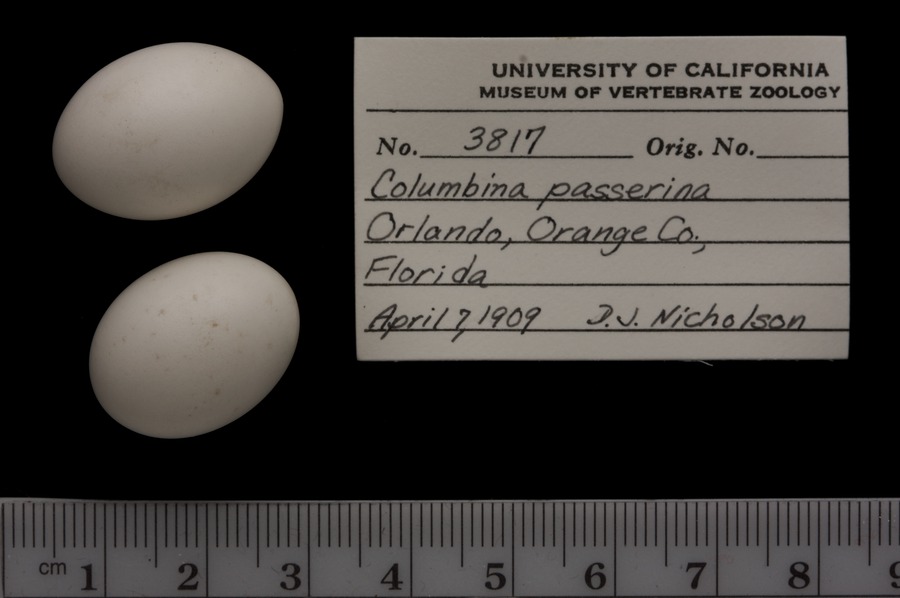 UNIVERSITY OF CALIFORNIA
MUSEUM OF VERTEBRATE ZOOLOGY
No. 3817 Orig. No.
Columbina passerina
Orlando, Orange Co.,
Florida
April 7, 1909 D.J. Nicholson
cm 1 2 3 4 5 6 7 8 9